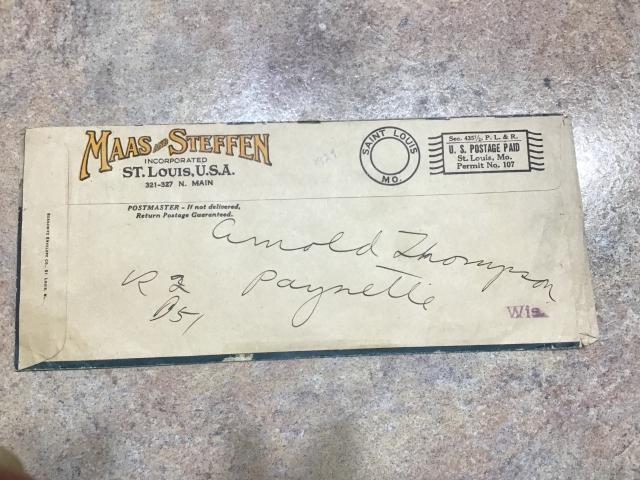 MAAS AND STEFFEN
INCORPORATED
ST. LOUIS, U.S.A.
321-327 N. MAIN
SAINT LOUIS
MO.
Sec. 435½, P. L. & R.
U. S. POSTAGE PAID
St. Louis, Mo.
Permit No. 107
POSTMASTER - If not delivered,
Return Postage Guaranteed.
Arnold Thompson
R 2 Paynette
B51
Wis.
ENVELOPE CO., ST. LOUIS, M